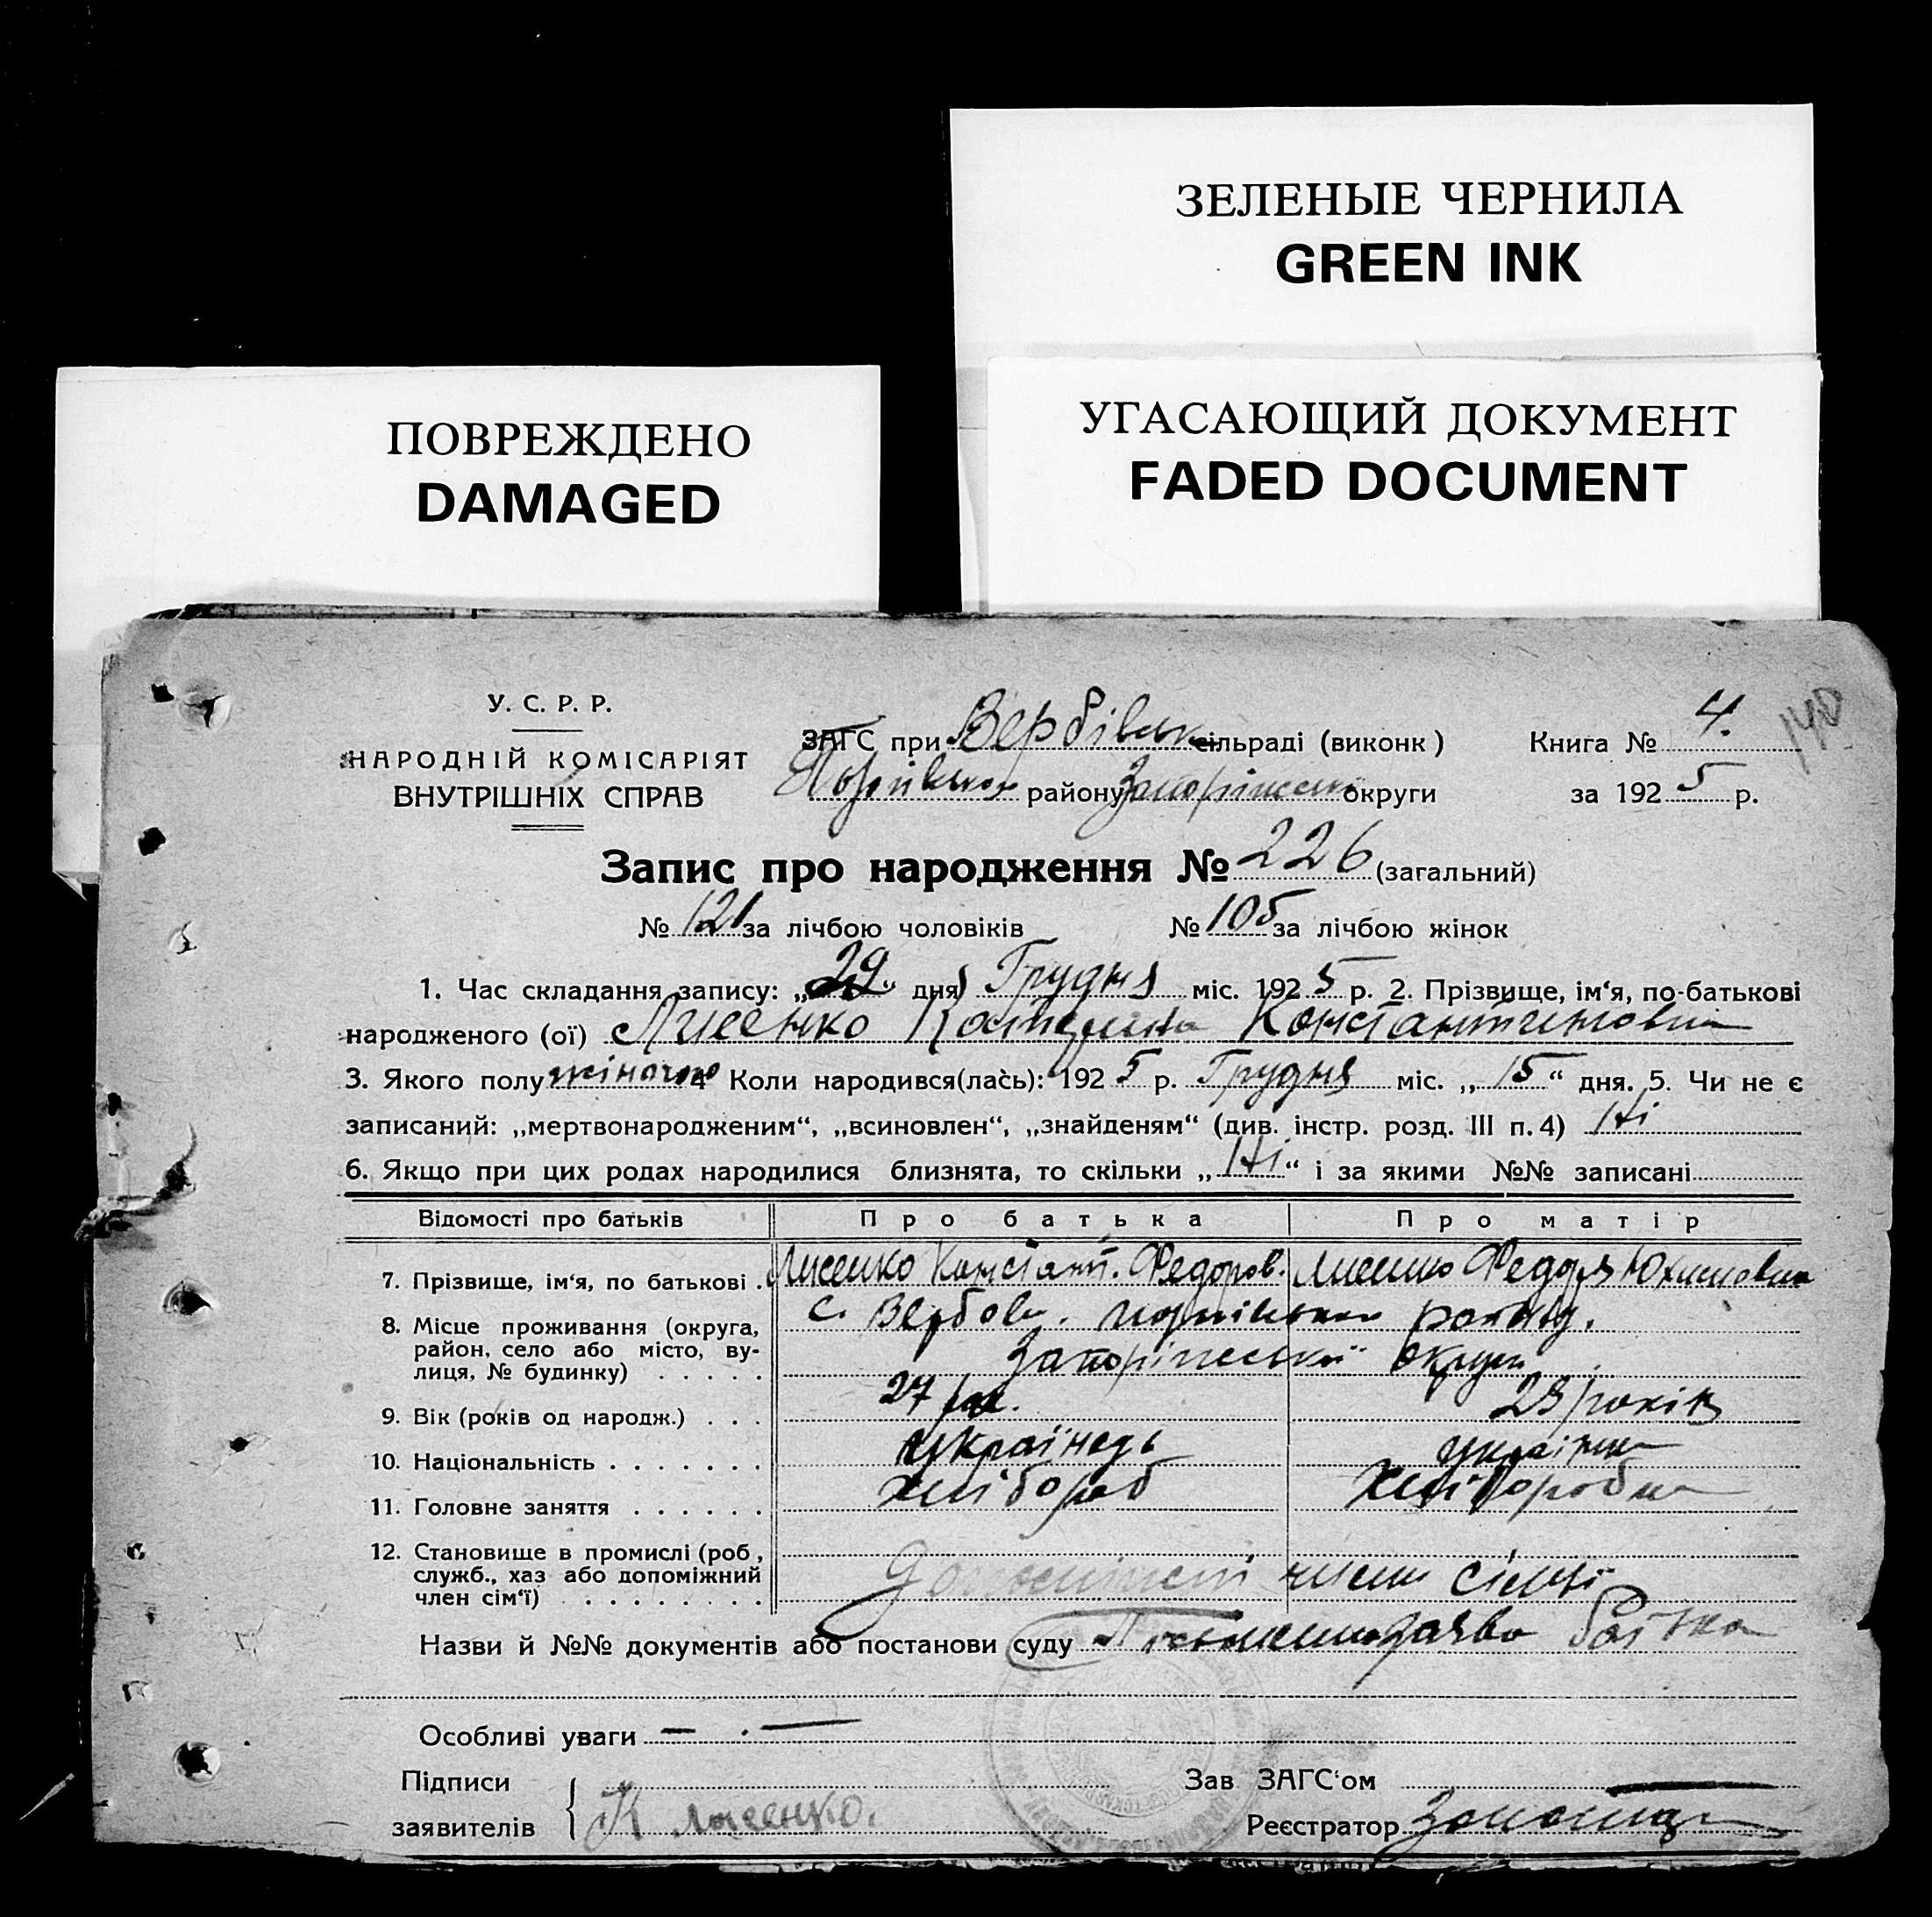 ЗЕЛЕНЫЕ ЧЕРНИЛА
GREEN INK
ПОВРЕЖДЕНО
DAMAGED
УГАСАЮЩИЙ ДОКУМЕНТ
FADED DOCUMENT
У. С. Р. Р.
НАРОДНІЙ КОМІСАРІЯТ
ВНУТРІШНІХ СПРАВ
ЗАГС при Вербівськ сільраді (виконк)
Книга № 4.
району Запоріжськ округи
за 1925 р.
Запис про народження № 226 (загальний)
№ 121 за лічбою чоловіків № 105 за лічбою жінок
1. Час складання запису: „29“ дня Грудня міс. 1925 р. 2. Прізвище, ім‘я, по-батькові
народженого (ої) Лисенко Катерина Константиновна
3. Якого полу жіночо 4 Коли народився(лась): 1925 р. Грудня міс. „15“ дня. 5. Чи не є
записаний: „мертвонародженим“, „всиновлен“, „знайденям“ (див. інстр. розд. III п. 4) Ні
6. Якщо при цих родах народилися близнята, то скільки „Ні“ і за якими №№ записані
Відомості про батьків Про батька Про матір
7. Прізвище, ім‘я, по батькові . Лисенко Констант. Федоров. Лисенко Федора Юхимовна
8. Місце проживання (округа,
район, село або місто, ву-
лиця, № будинку) . . . . .
с. Вербове. району.
Запоріжської округи
9. Вік (років од народж.) . . . 27 рок. 29 років
10. Національність . . . . . . . українець українка
11. Головне заняття . . . . . . хлібороб хліборобка
12. Становище в промислі (роб,
служб., хаз або допоміжний
член сім‘ї) . . . . . . . .
члени сімьї
Назви й №№ документів або постанови суду заява батька
Особливі уваги — . —
Підписи
заявителів
К Лисенко.
Зав ЗАГС‘ом —
Реєстратор